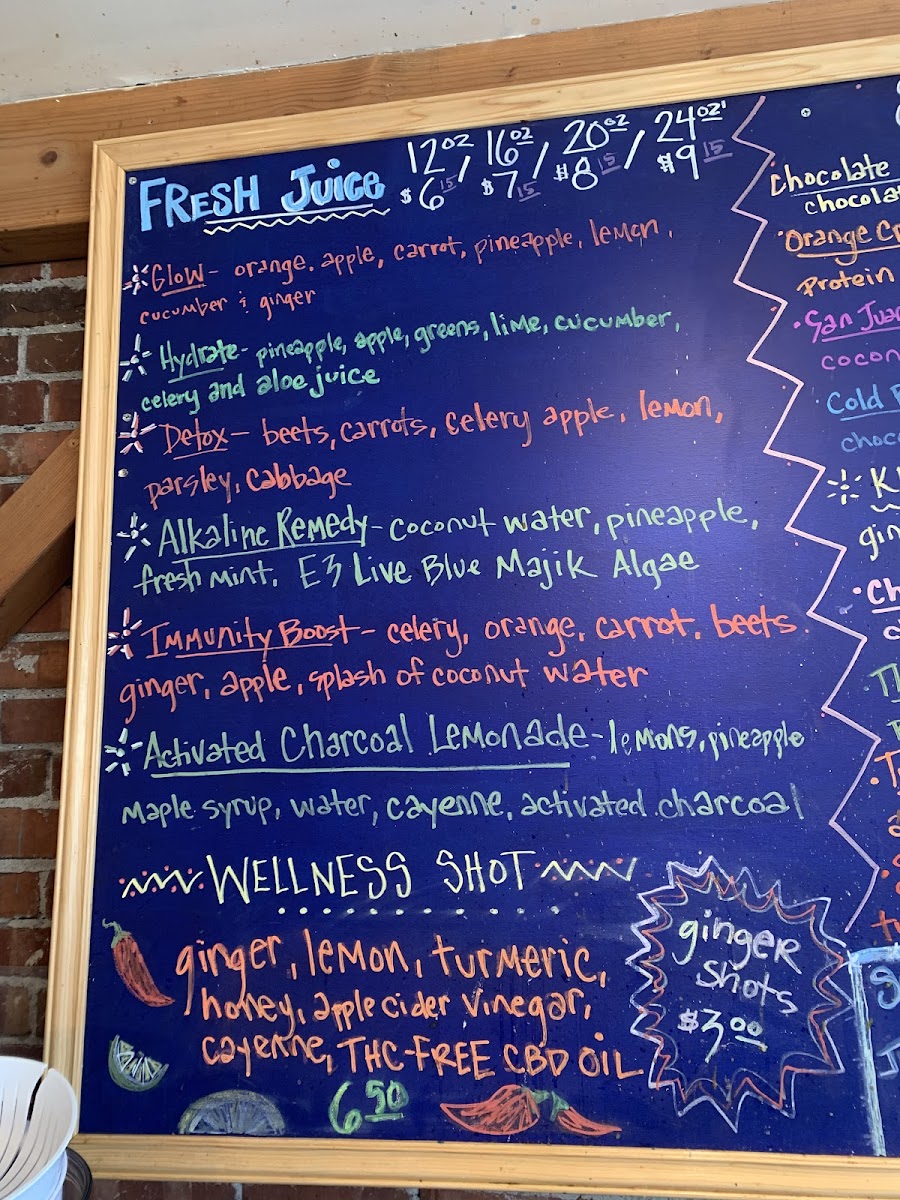 FRESH Juice
12oz / 16oz / 20oz / 24oz
$6 15 $7 15 $8 15 $9 15
Glow - orange. apple, carrot, pineapple, lemon,
cucumber & ginger
Hydrate - pineapple, apple, greens, lime, cucumber,
celery and aloe juice
Detox - beets, carrots, celery apple, lemon,
parsley, cabbage
Alkaline Remedy - coconut water, pineapple,
fresh mint. E3 Live Blue Majik Algae
Immunity Boost - celery, orange, carrot, beets
ginger, apple, splash of coconut water
Activated Charcoal Lemonade - lemons, pineapple
maple syrup, water, cayenne, activated charcoal
WELLNESS SHOT
ginger, lemon, turmeric,
honey, apple cider vinegar,
cayenne, THC-FREE CBD OIL
6 50
ginger
shots
$3.00
Chocolate
chocola
Orange
Protein
San Jua
cocon
Cold
choc
gin